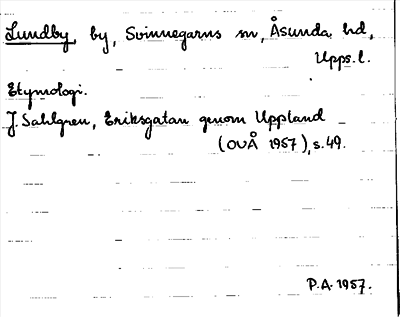 Lundby, by, Svinnegarns sn, Åsunda hd,
Upps. l.
Etymologi.
J. Sahlgren, Eriksgatan genom Uppland
(OUÅ 1957), s. 49.
P.A. 1957.